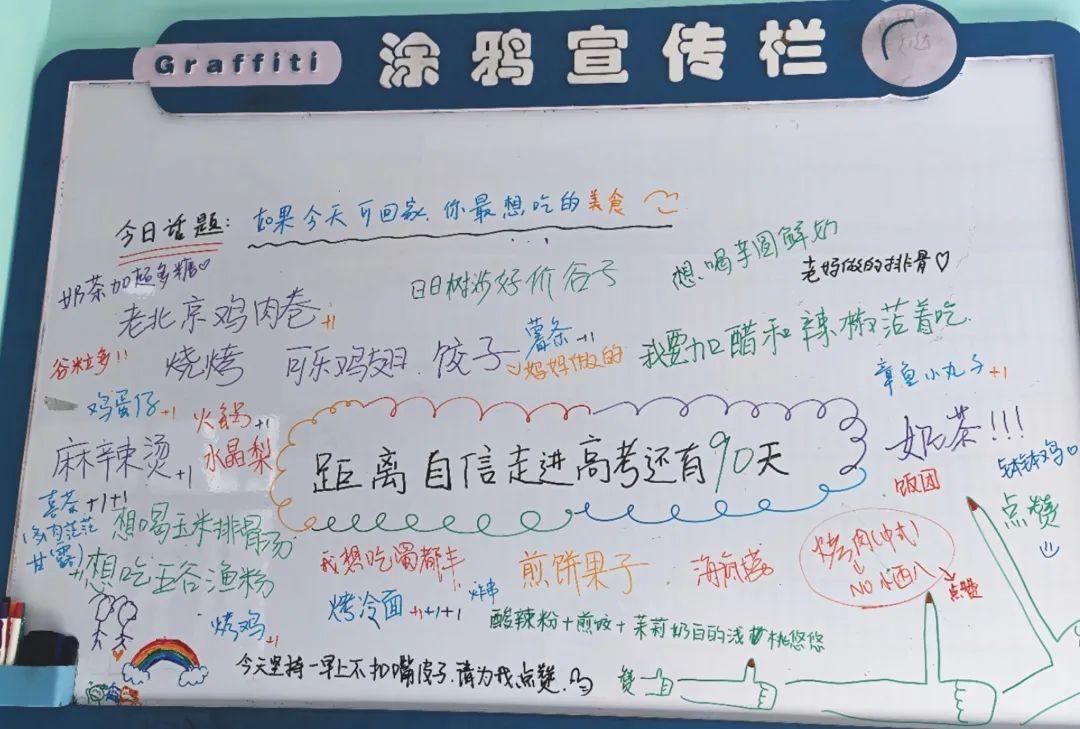 Graffiti
涂鸦宣传栏
今日话题：如果今天可回家，你最想吃的美食
奶茶加超多糖♡
想喝芋圆鲜奶
老妈做的排骨♡
好价谷子
老北京鸡肉卷+1
谷粒多!!
烧烤
可乐鸡翅
饺子
薯条+1
妈妈做的
我要加醋和辣椒沾着吃
章鱼小丸子+1
鸡蛋仔+1
火锅+1
奶茶!!!
麻辣烫+1
水晶梨
距离自信走进高考还有90天
饭团
钵钵鸡♡
喜茶+1+1
(多肉芒芒甘露)
点赞
想喝玉米排骨汤
我想吃蜀都丰
煎饼果子
海底捞
烤肉(中式)
NO 小西八
点赞
想吃五谷渔粉
+1
烤冷面+1+1+1
炸串
烤鸡+1
酸辣粉+煎饺+茉莉奶白的浅桃悠悠
今天坚持一早上不扣嘴皮子，请为我点赞
赞